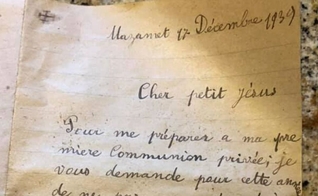 Mazamet 17 Décembre 1939
Cher petit Jésus
Pour me préparez a ma pre
mière Communion privée, je
vous demande pour cette an
de ne